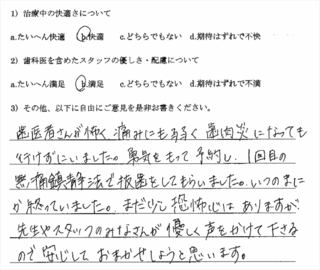 1) 治療中の快適さについて
a.たいへん快適 b.快適 c.どちらでもない d.期待はずれで不快
2) 歯科医を含めたスタッフの優しさ・配慮について
a.たいへん満足 b.満足 c.どちらでもない d.期待はずれで不満
3) その他、以下に自由にご意見を是非お書きください。
歯医者さんが怖く、痛みにも弱く 歯肉炎になっても
行けずにいました。勇気をもって予約し、1回目の
無痛鎮静法で抜歯をしてもらいました。いつのまに
か終っていました。まだ少し恐怖心はありますが、
先生やスタッフのみなさんが優しく声をかけて下さる
ので 安心して おまかせしようと思います。